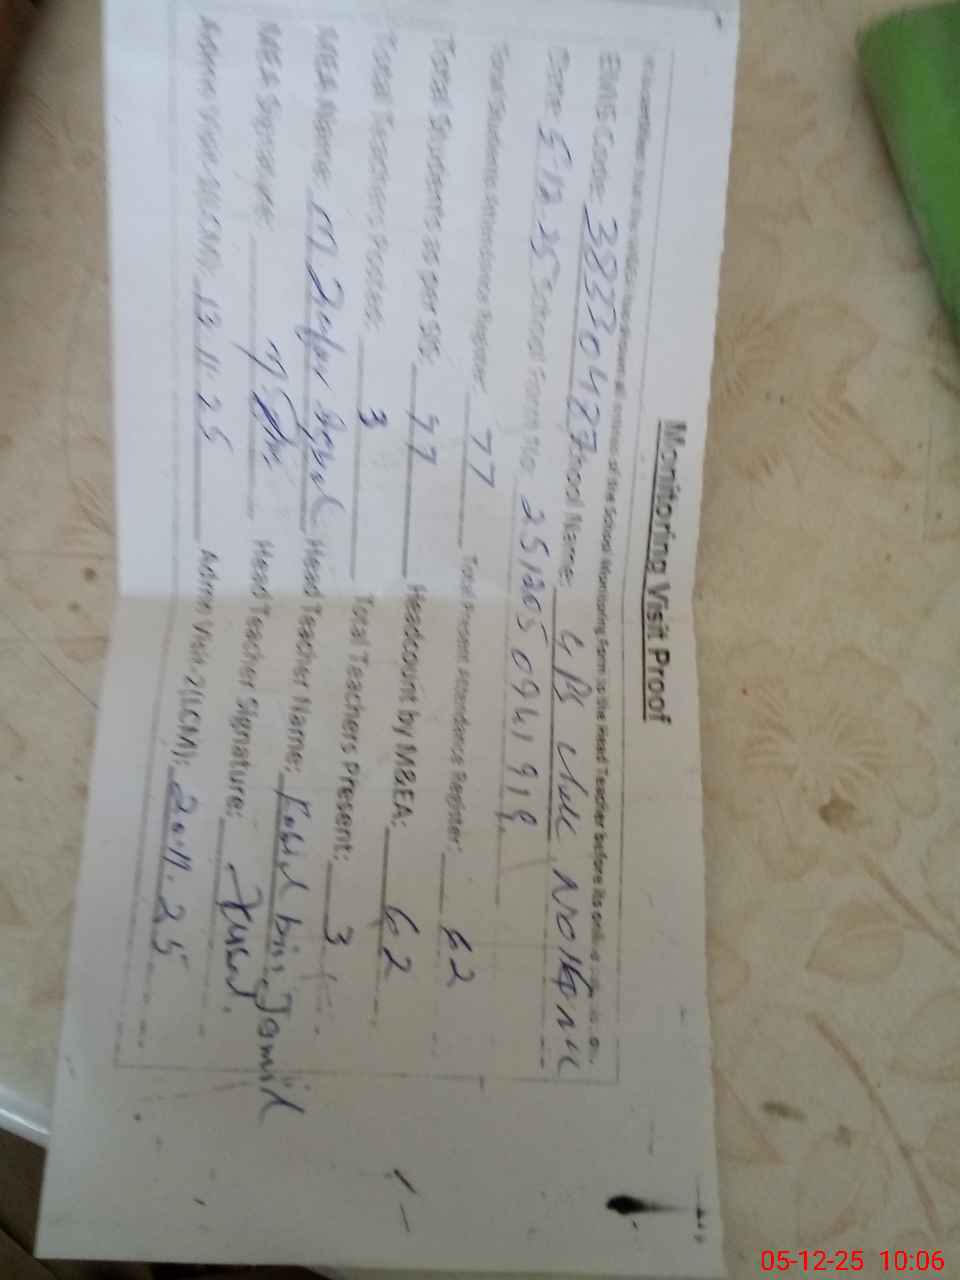 Monitoring Visit Proof
It is certified that the M&EA has shown all entries of the School Monitoring Form to the Head Teacher before its online
EMIS Code: 38330487 School Name: GPS
Date: 5-12-25 School Form No: 2512050941919
Total Students Attendance Register: 77 Total Present Attendance Register: 62
Total Students as per SIS: 77 Headcount by M&EA: 62
Total Teachers Posted: 3 Total Teachers Present: 3
MEA Name: M Zafar Head Teacher Name: bin Jamil
MEA Signature: Head Teacher Signature:
Admn Visit-1(LCM): 19.11.25 Admn Visit-2(LCM): 20.11.25
05-12-25 10:06